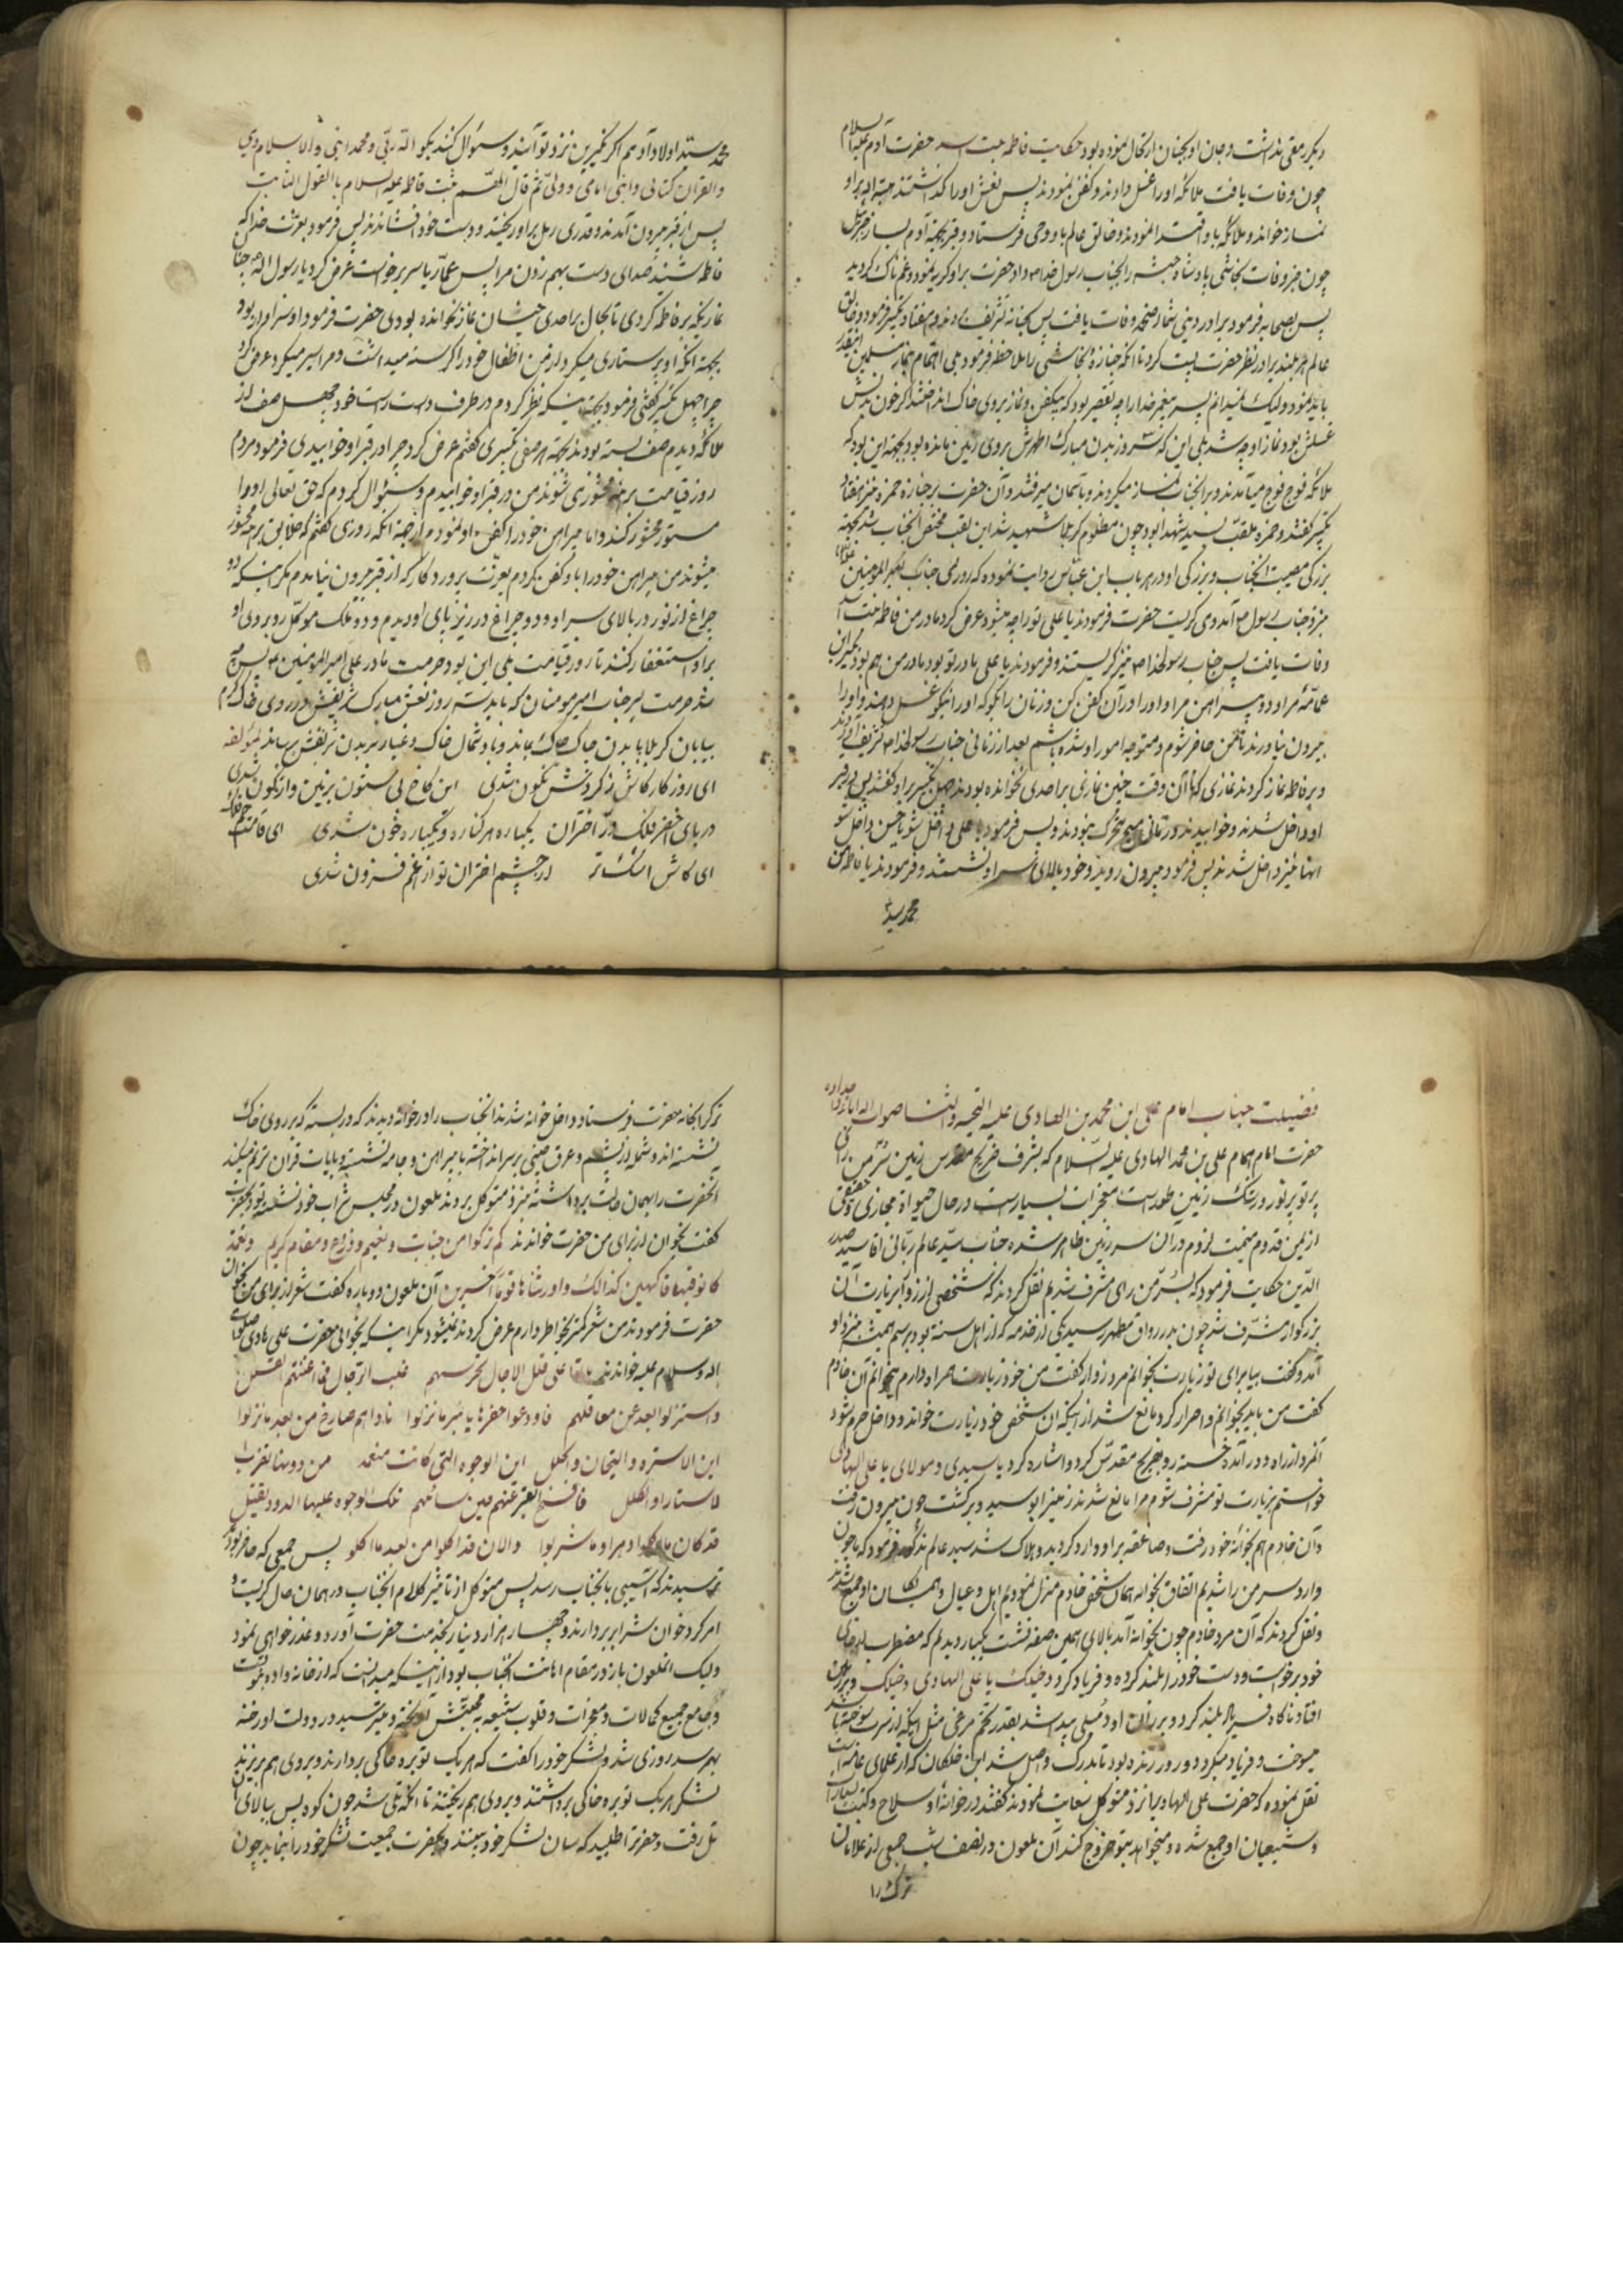 دیگر رمقی نداشت و جان او بجنان ارتحال نموده بود حکایت فاطمه بنت اسد حضرت آدم علیه السلام
چون وفات یافت ملائکه او را غسل دادند و کفن نمودند پس نعش او را گذاشتند هبة الله بر او
نماز خواند و ملائکه باو اقتدا نمودند و خالق عالم باو وحی فرستاد و قبر بجهة آدم بساز
چون خبر وفات نجاشی پادشاه حبش را بجناب رسول خدا ص داد حضرت بر او گریه نمود و غمناک گردید
پس بصحابه فرمود برادر دینی شما اصحمه وفات یافت پس بخانه تشریف و هفتاد تکبیر فرمود و خالق
عالم هر بلندی را در نظر حضرت پست کرد تا آنکه جنازه نجاشی را ملاحظه فرمود بلی اهتمام بنماز مسلمین اینقدر
باید نمود ولیک نمیدانم پسر پیغمبر خدا را چه تقصیر بود که بیکفن و نماز بروی خاک انداختند اگر خون بدنش
غسلش بود نماز او چه شد بلی این که سه روز بدن مبارک اطهرش بروی زمین مانده بود بجهة این بود که
ملائکه فوج فوج میآمدند و بر آنجناب نماز میکردند و بآسمان میرفتند و آن حضرت بر جنازه حمزه نیز هفتاد
تکبیر گفتند و حمزه ملقب بسید الشهدا بود چون مظلوم کربلا شهید شد این لقب مختص آنجناب شد بجهة
بزرگی مصیبت آنجناب و بزرگی او در هر باب ابن عباس روایت نموده که روزی جناب امیر المؤمنین
بنزد جناب رسول ص آمد و می گریست حضرت فرمودند یا علی تو را چه میشود عرض کرد مادر من فاطمه بنت اسد
وفات یافت پس جناب رسولخدا ص نیز گریستند و فرمودند یا علی مادر تو بود مادر من هم بود بگیر این
عمامه مرا و دو پیراهن مرا و او را در آن کفن کن و زنان را بگو که او را نیکو غسل دهند و او را
بیرون نیاورند تا من حاضر شوم و متوجه امور او شده باشم بعد از زمانی جناب رسولخدا ص تشریف آوردند
و بر فاطمه نماز کردند نمازی که تا آن وقت چنین نمازی بر احدی نخوانده بودند چهل تکبیر بر او گفتند پس در قبر
او داخل شدند و خوابیدند و زمانی هیچ متحرک نبودند و پس فرمود یا علی داخل شو یا حسن داخل شو
آنها نیز داخل شدند پس فرمود بیرون روید و خود بالای سر او نشستند و فرمودند یا فاطمه من
محمد سید
محمد سید اولاد آدم اگر نکیرین نزد تو آیند و سئوال کنند بگو الله ربی و محمد نبیی و الاسلام دینی
و القران کتابی و ابنی امامی و ولیی ثم قال اللهم ثبت فاطمه علیه السلام باالقول الثابت
پس از قبر بیرون آمدند و قدری رمل بر او ریختند و دست خود افشاندند پس فرمود بعزت خدا که
فاطمه شنید صدای دست بهم زدن مرا پس عمار یاسر برخواست عرض کرد یا رسول الله چرا
نمازیکه بر فاطمه کردی تا بحال بر احدی چنین نماز نخوانده بودی حضرت فرمود او سزاوار بود
بجهة آنکه او پرستاری میکرد از من اطفال خود را گرسنه میداشت و مرا سیر میکرد عرض کرد
چرا چهل تکبیر گفتی فرمود بجهة اینکه نظر کردم در طرف دست راست خود چهل صف از
ملائکه دیدم صف بسته بودند بجهة هر صفی تکبیری گفتم عرض کرد چرا در قبر او خوابیدی فرمود مردم
روز قیامت برهنه محشور می شوند من در قبر او خوابیدم و سئوال کردم که حق تعالی او را
مستور محشور کند و اما پیراهن خود را کفن او نمودم از جهة آنکه روزی گفتم که خلایق برهنه محشور
میشوند من پیراهن خود را باو کفن کردم بعزت پروردکار که از قبر بیرون نیامدم مکر اینکه دو
چراغ از نور در بالای سر او و دو چراغ در زیر پای او دیدم و دو ملک موکل رو بروی او
بر او استغفار کنند تا روز قیامت بلی این بود حرمت مادر علی امیر المؤمنین ع پس چه
شد حرمت پسر جناب امیرمومنان که باید سه روز نعش مبارک شریفش در روی خاک گرم
بیابان کربلا با بدن چاک چاک بماند و باد شمال خاک و غبار بر بدن شریفش برساند لمؤلفه
ای روزکار کاش ز گردش نکون شدی این کاخ بی ستون بزمین واژگون شدی
دریای اخضر فلک و در اختران یکباره هر کناره و یکباره خون شدی ای قامت
ای کاش اشک تر از چشم اختران تو از غم فزون شدی
فضیلت جناب امام علی ابن محمد بن الهادی علیه التحیه و الثنا
حضرت امام همام علی بن محمد الهادی علیه السلام که بشرف ضریح مقدس زمین سر من رای
پرتو پر نور و رشک زمین طور است معجزات بسیار است و در حال حیواة مجازی و حقیقی
از یمن قدوم میمنت لزوم در آن سرزمین ظاهر شده جناب سید عالم ربانی اقا سید صدر
الدین حکایت فرمود که بسر من رای مشرف شدیم نقل کردند که شخصی از زوار بزیارت آن
بزرکوار مشرف شد چون بدر رواق مطهر رسید یکی از خدمه که از اهل سنة بود برسم همیشه بنزد او
آمد و کفت بیا برای تو زیارت بخوانم مرد زوار کفت من خود زیارت همراه دارم میخوانم آن خادم
کفت من باید بخوانم و اصرار کرد مانع شد از اینکه آن شخص خود زیارت خواند و داخل حرم شود
آنمرد از راه دور آمده خسته رو بضریح مقدس کرد و اشاره کرد یا سیدی و مولای یا علی الهادی
خواستم بزیارت تو مشرف شوم مرا مانع شدند زمین را بوسید و برگشت چون بیرون رفت
و آن خادم هم بخوانه خود رفت و صاعقه بر او وارد کردید و هلاک شد سید عالم مذکور فرمود که ما چون
وارد سر من را شدیم اتفاق بخوانه همان شخص خادم منزل نمودیم اهل و عیال و همسایکان او جمع شدند
و نقل کردند که آن مرد خادم چون بخوانه آمد بالای همین صفه نشست یکبار دیدیم که مضطرب از جای
خود برخواست و دست خود را بلند کرده و فریاد کرد دخیلک یا علی الهادی دخیلک و بر زمین
افتاد ناکاه فریاد بلند کرد و بر ران او دملی پیدا شد بقدر تخم مرغی مثل اینکه از
میسوخت و فریاد میکرد دو روز زنده بود تا بدرک واصل شد ابن خلکان که از علمای عامه است
نقل نموده که حضرت علی الهادی را نزد متوکل سعایت نمودند کفتند در خوانه او سلاح و کتب بسیار
و شیعیان او جمع شده و میخواهد بتو خروج کند آن ملعون در نصف شب جمعی از غلامان
ترک را
ترک را بخانه حضرت فرستاد داخل خوانه شدند آنجناب را در خوانه دیدند که در بسته که بر روی خاک
نشسته اند و شمله از پشم و عرق چینی بر سر انداخته با پیراهن و جامه نشسته و بایات قران ترنم میکند
آنحضرت را بهمان حالت برداشته بنزد متوکل بردند ملعون در مجلس شراب خود نشسته بود بحضرت
کفت بخوان از برای من حضرت خواندند کم ترکوا من جنات و نعیم و زروع و مقام کریم و نعمة
کانو فیها فاکهین کذالک و اورثناها قوما آخرین آن ملعون دوباره کفت شعر از برای من بخوان
حضرت فرمودند من شعر کمتر بخاطر دارم عرض کردند نمیشود مکر اینکه بخوانی حضرت علی هادی صلوات
اله و سلام علیه خواندند باتوا علی قلل الاجبال تحرسهم غلب الرجال فما اغنتهم القلل
و استنزلوا بعد عن معاقلهم فاودعوا حفرا یا بئس ما نزلوا ناداهم صارخ من بعد ما نزلوا
این الاسترة و التیجان و الحلل این الوجوه التی کانت منعمة من دونها تضرب
الاستار و الکلل فافصح القبر عنهم حین سائلهم تلک الوجوه علیها الدود یقتتل
قد کان ما اکلوا دهرا و ما شربوا و الان قد اکلوا من بعد ما اکلو پس جمعی که حاضر بودند
ترسیدند که آسیبی بآنجناب رسد پس متوکل از تاثیر کلام آنجناب در همان حال گریست و
امر کرد خوان شراب بردارند و چهار هزار دینار بخدمت حضرت آورد و عذر خواهی نمود
ولیک آنملعون باز در مقام اهانت آنجناب بود از اینکه میدانست که از خانواده نبوت است
و جامع جمیع کمالات و معجزات و قلوب شیعه بمحبتش آویخته و میترسید در دولت او رخنه
بهم رسد روزی شد و لشکر خود را کفت که هر یک توبره خاکی بردارند و بروی هم بریزند
لشکر هر یک توبره خاکی برداشتند و بروی هم ریختند تا آنکه تلی شد چون کوه پس ببالای آن
تل رفت و حضرترا طلبید که سان لشکر خود ببیند و بحضرت جمعیت لشکر خود را بنماید چون